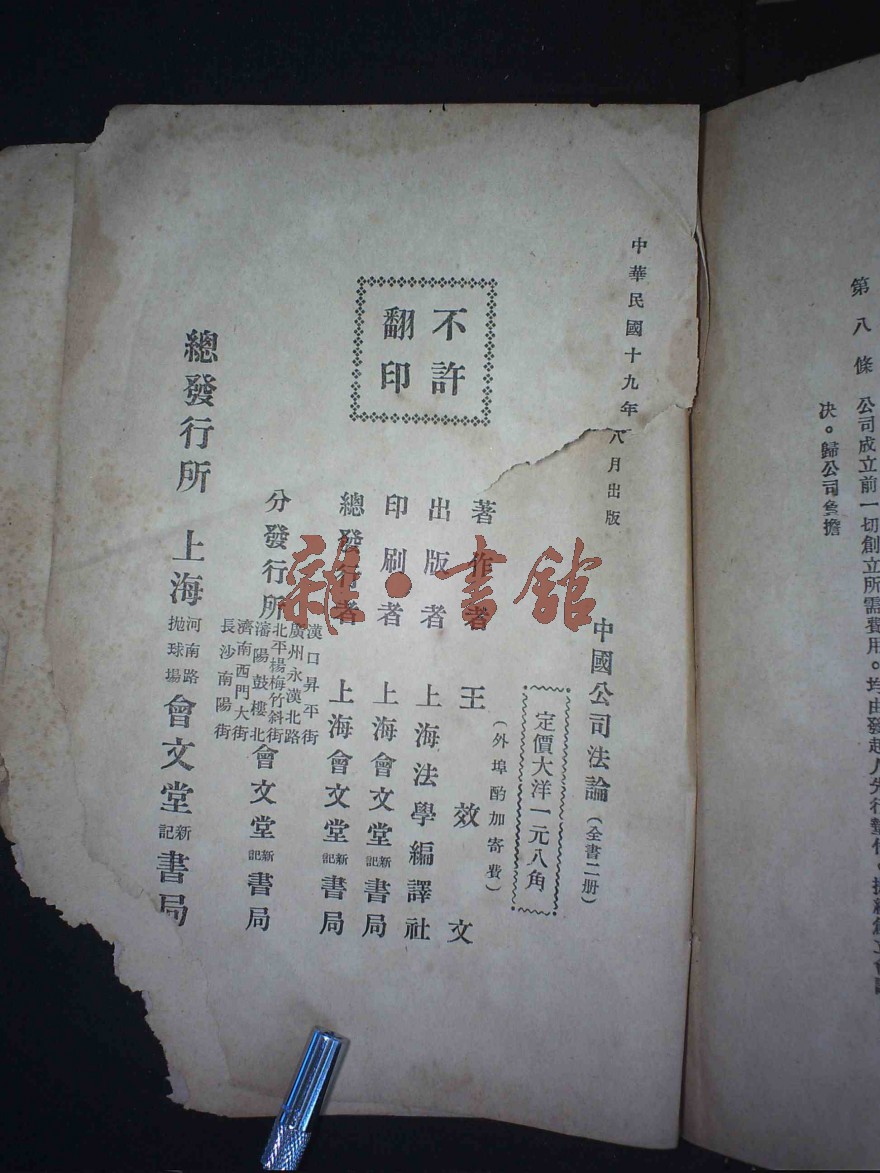 第八條　公司成立前一切創立所需費用。均由發起人先行墊付。
決。歸公司負擔
中華民國十九年八月出版
中國公司法論（全書二册）
定價大洋一元八角
（外埠酌加寄費）
不許
翻印
著作者　王效文
出版者　上海法學編譯社
印刷者　上海會文堂新記書局
總發行者　上海會文堂新記書局
分發行所
漢口昇平街
廣州永漢北路
北平楊梅竹斜街
瀋陽鼓樓北
濟南西門大街
長沙南陽街
會文堂新記書局
總發行所　上海
河南路
拋球場
會文堂新記書局
雜·書館